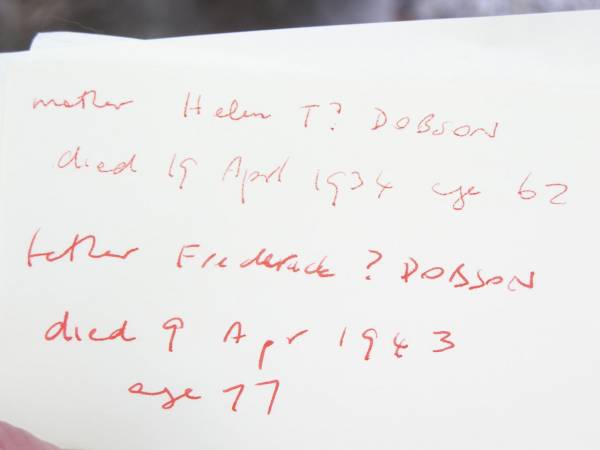 mother Helen T? DOBSON
died 19 April 1934 age 62
father Frederick ? DOBSON
died 9 Apr 1943
age 77